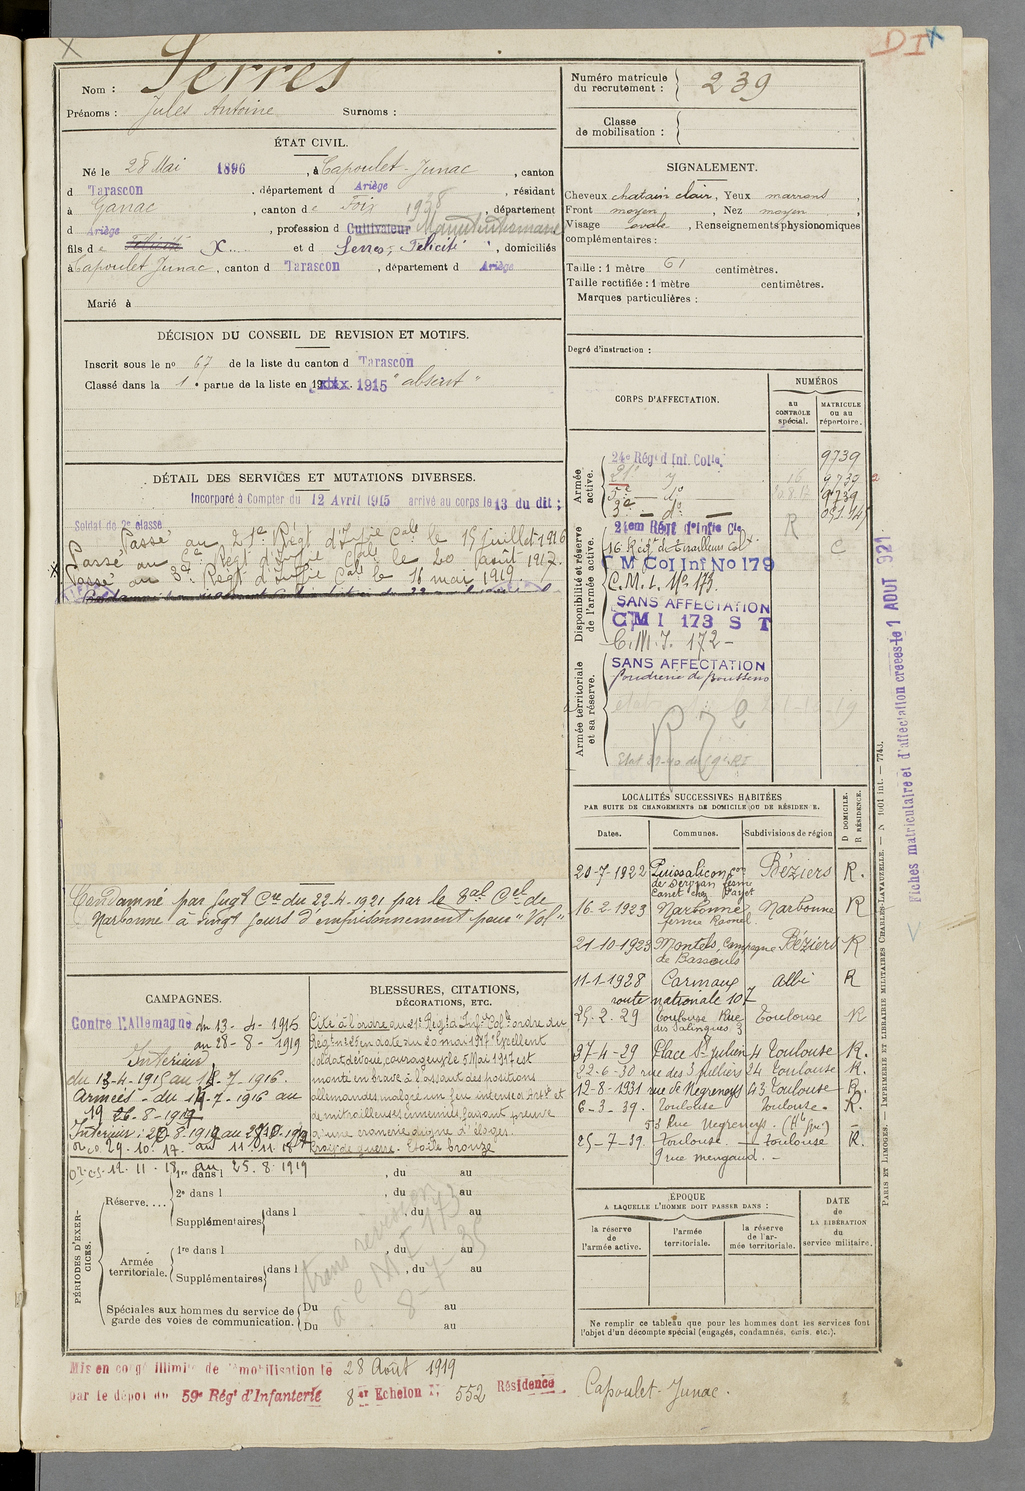 DI
Nom : Serres
Prénoms : Jules Antoine Surnoms :
Numéro matricule du recrutement : 239
Classe de mobilisation :
ÉTAT CIVIL.
Né le 28 Mai 1896, à Capoulet-Junac, canton
d Tarascon, département d Ariège, résidant
à Ganac, canton de Foix 1938, département
d Ariège, profession d Cultivateur
fils de Félicité X.... et d Serres, Félicité, domiciliés
à Capoulet Junac, canton d Tarascon, département d Ariège
Marié à
SIGNALEMENT.
Cheveux chatain clair, Yeux marrons,
Front moyen, Nez moyen,
Visage ovale, Renseignements physionomiques
complémentaires :
Taille : 1 mètre 61 centimètres.
Taille rectifiée : 1 mètre centimètres.
Marques particulières :
Degré d'instruction :
DÉCISION DU CONSEIL DE REVISION ET MOTIFS.
Inscrit sous le no 67 de la liste du canton d Tarascon
Classé dans la 1e partie de la liste en 1915 "absent"
DÉTAIL DES SERVICES ET MUTATIONS DIVERSES.
Incorporé à Compter du 12 Avril 1915 arrivé au corps le 13 du dit ;
Soldat de 2e classe
Passé au 21e Régt d'Infie Cale le 15 juillet 1916
Passé au 5e Régt d'Infie Cale le 20 Août 1917.
Passé au 3e Régt d'Infie Cale le 16 mai 1919
Condamné par jugt Cre du 22.4.1921 par le Bal Cel de
Narbonne à vingt jours d'emprisonnement pour "Vol"
CORPS D'AFFECTATION.
NUMÉROS
au CONTROLE spécial.
MATRICULE ou au répertoire.
Armée active.
24e Régt d Inf. Colle 9739
21e 16 9739
5e — do 9739
3e — do —
Disponibilité et réserve de l'armée active.
24em Régt d'Infie Cle R
16 Régt de Tirailleurs Colx. C
C M Col Inf No 179
C.M.I. No 173.
SANS AFFECTATION
CMI 173 S T
C.M.I. 172 -
Armée territoriale et sa réserve.
SANS AFFECTATION
poudrerie de Boussens
Fiches matriculaire et d'affectation créées le 1 AOUT 921
LOCALITÉS SUCCESSIVES HABITÉES
PAR SUITE DE CHANGEMENTS DE DOMICILE OU DE RÉSIDENCE.
Dates. Communes. Subdivisions de région D DOMICILE. R RÉSIDENCE.
20-7-1922 Puissalicon con de Servian ferme Canet chez Payot Béziers R.
16-2-1923 Narbonne ferme Raonel Narbonne R
21-10-1923 Montels, Campagne de Bassouls Béziers R
11-1-1928 Carmaux Albi R
route nationale 107
25.2.29 Toulouse Rue des Salingues 3 Toulouse R
27-4-29 Place St julien 4 Toulouse R.
22-6-30 rue des 3 piliers 24 Toulouse R.
12-8-1931 rue de Negreneys 43 Toulouse R.
6-3-39. Toulouse Toulouse. R.
53 Rue Negreneys.
25-7-39 Toulouse. — Toulouse R.
9 rue mengaud. -
CAMPAGNES.
Contre l'Allemagne du 13-4-1915
au 28-8-1919
Intérieur
du 13-4-1915 au 14-7-1916.
Armées - du 15-7-1916 au
19
BLESSURES, CITATIONS,
DÉCORATIONS, ETC.
Cité à l'ordre du 21e Régt d'Infie Colle ordre du
Régt no 25 en date du 20 mai 1917 "Excellent
soldat dévoué, courageux, le 5 Mai 1917 est
monté en brave à l'assaut des positions
allemandes malgré un feu intense d'Artie et
de mitrailleuses ennemies, faisant preuve
d'une crânerie digne d'éloges.
Croix de guerre. Etoile bronze
PÉRIODES D'EXERCICES.
Réserve....
1re dans l , du au
2e dans l , du au
Supplémentaires dans l , du au
Armée territoriale.
1re dans l , du au
Supplémentaires dans l , du au
Spéciales aux hommes du service de garde des voies de communication.
Du au
Du au
trans révision
à C M I 173
8-7-35
ÉPOQUE
A LAQUELLE L'HOMME DOIT PASSER DANS :
la réserve de l'armée active.
l'armée territoriale.
la réserve de l'armée territoriale.
DATE de LA LIBÉRATION du service militaire.
Ne remplir ce tableau que pour les hommes dont les services font
l'objet d'un décompte spécial (engagés, condamnés, omis, etc.).
PARIS ET LIMOGES. — IMPRIMERIE ET LIBRAIRIE MILITAIRES CHARLES-LAVAUZELLE. — N 1001 int. — 7743.
Mis en congé illimité de démobilisation le 28 Août 1919
par le dépôt du 59e Régt d'Infanterie 8e Echelon No 552 Résidence Capoulet-Junac.